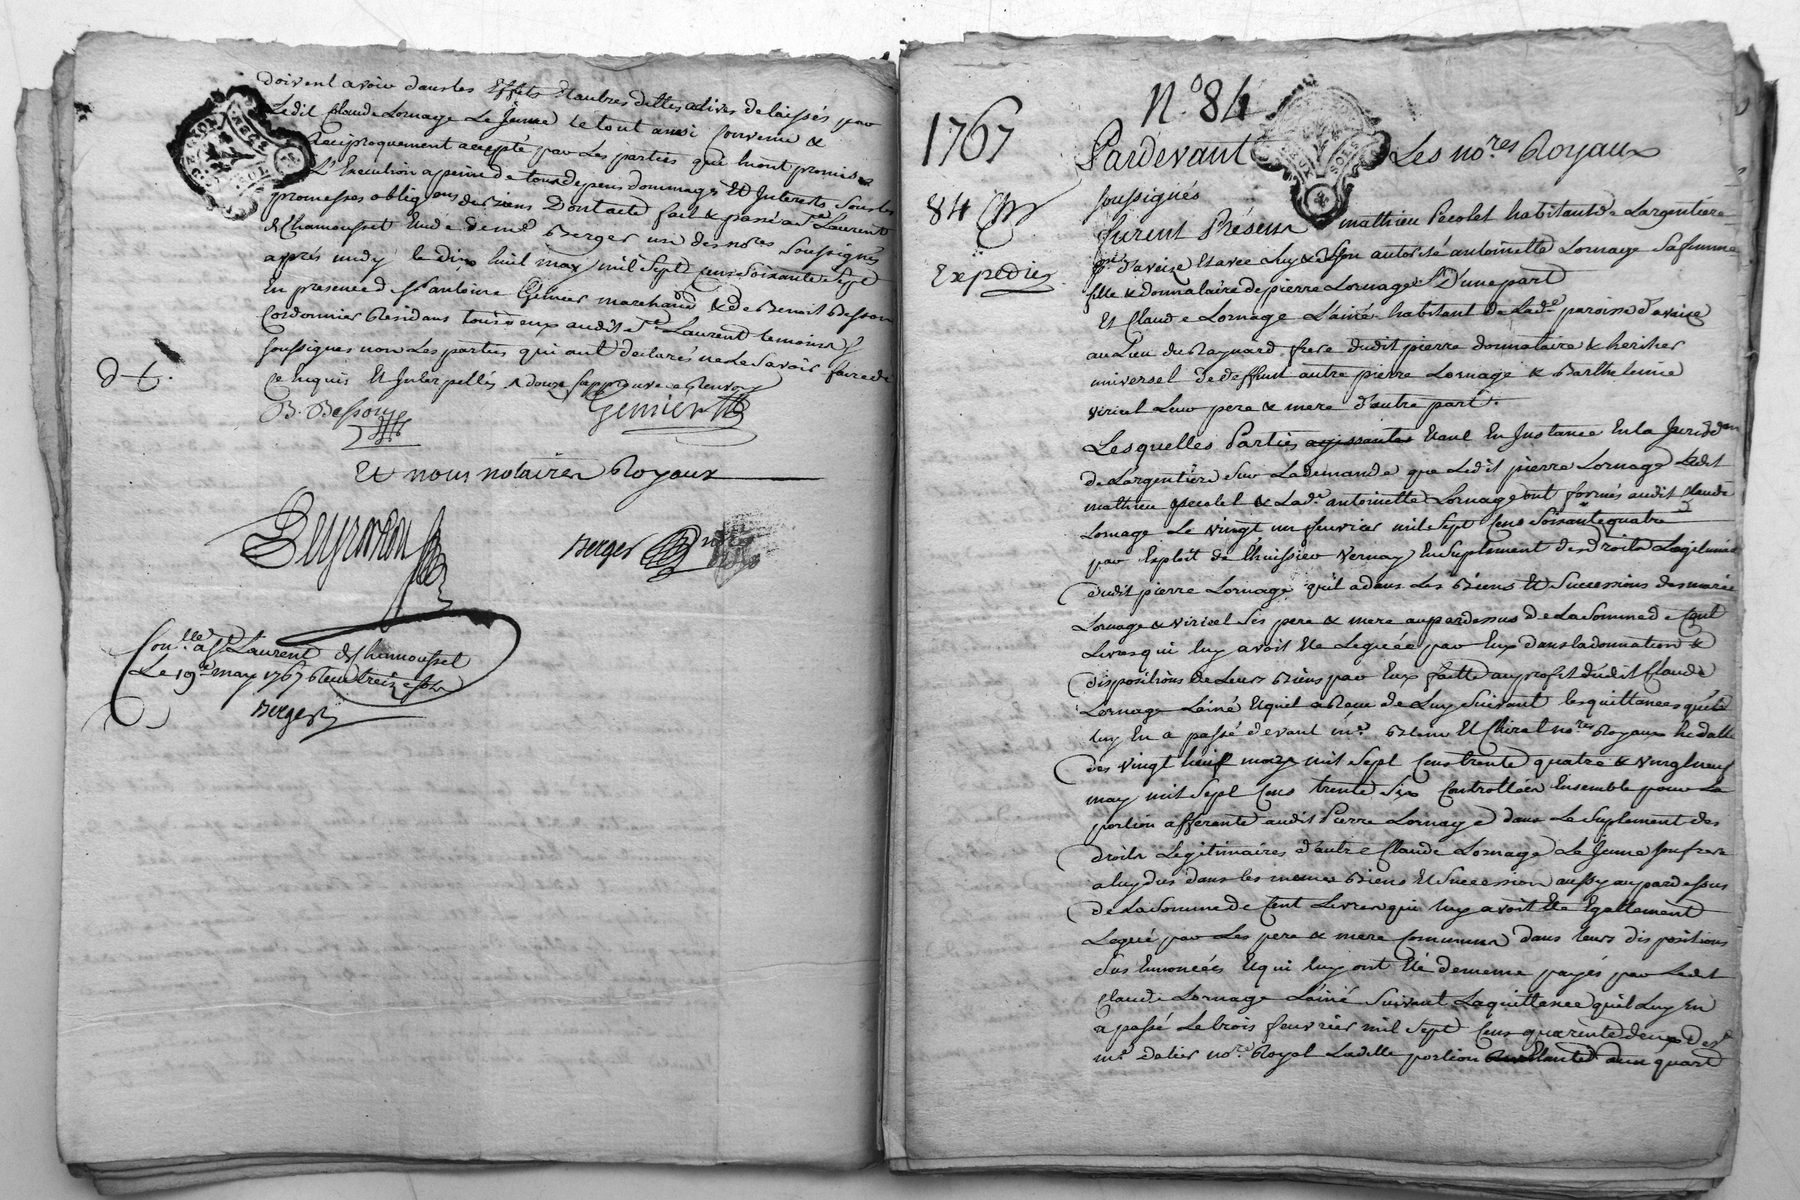 doivent avoir dans les Effets Et autres dettes actives delaissés par
Ledit Claude Lornage Le Jeune le tout ainsi Convenu &
Reciproquement accepté par Les parties qui l'ont promis
L'Execution a peine de tous depens dommages Et Interests Sous les
promesses obligons des biens Dont acte fait & passé a St Laurent
de Chamousset Etude de me Berger un des nores Soussignés
après midy le dix huit may mil Sept cens Soixante Sept
En presence de Sr antoine Genier marchand & de Benoit Besson
Cordonnier Residans tous deux audit St Laurent temoins
Soussignés non Les parties qui ont declaré ne le Savoir faire de
ce Enquis Et Interpellés
B. Besson
Genier
Et nous notaires Royaux
Peyrodon
Berger
Conlle a St Laurent de Chamousset
Le 19e may 1767 Reçu treize sols
Berger
No 84
1767
Pardevant Les nores Royaux
84
soussignés
furent Présens mathieu Pecolet habitant de Largentière
Expediée
psse d'aveize Et avec Luy & de Son autorité antoinette Lornage Sa femme
fille & donnataire de pierre Lornage D'une part
Et Claude Lornage L'ainé habitant de Lade paroisse d'aveize
au Lieu du Raynard frere dudit pierre donnataire & heritier
universel de deffunt autre pierre Lornage & Barthelemie
viricel Leur pere & mere d'autre part.
Lesquelles Parties Etant En Instance En la Juridon
de Largentière Sur La demande que Ledit pierre Lornage Ledit
mathieu pecolet & Lade antoinette Lornage ont formés audit Claude
Lornage Le vingt un feuvrier mil Sept Cens Soixante quatre
par Exploit de l'huissier vernay En Suplement des droits Legitimaires
dudit pierre Lornage qu'il a dans Les Biens Et Successions des mariés
Lornage & viricel Ses pere & mere au pardessus de La Somme de Cent
Livres qui luy avoit Eté Leguée par Eux dans la donnation &
dispositions de Leurs Biens par Eux faitte au profit dudit Claude
Lornage L'ainé Et qu'il a Reçue de Luy Suivant les quittances qu'il
luy En a passé devant me Et nores Royaux
des vingt huit mars mil Sept Cens trente quatre & vingt neuf
may mil Sept Cens trente Six Controllées Ensemble pour La
portion afferante audit Pierre Lornage dans Le Suplement des
droits Legitimaires d'autre Claude Lornage Le Jeune son frere
a luy dus dans les memes Biens Et Succession aussy au pardessus
de La Somme de Cent Livres qui luy avoit Eté Egallement
Legué par Les pere & mere Communs dans leurs dispositions
Sus Ennoncées Et qui luy ont Eté de meme payés par Ledit
Claude Lornage L'ainé Suivant La quittance qu'il Luy En
a passé Le trois feuvrier mil Sept Cens quarente deux
me nore Royal Laditte portion d'un quart